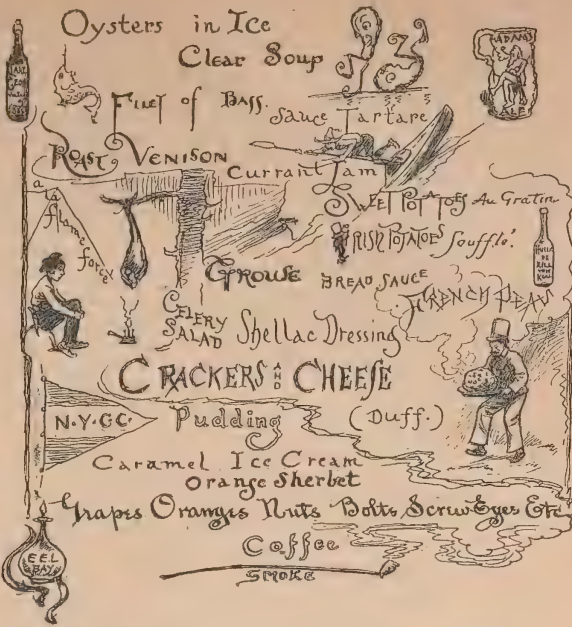 Oysters in Ice
Clear Soup
ADAMS
ALE
Filet of Bass.
Sauce Tartare
Roast Venison
Currant Jam
Sweet Potatoes Au Gratin
a la
flame force
Irish Potatoes Soufflé.
Grouse Bread Sauce
French Peas
Celery
Salad Shellac Dressing
Crackers and Cheese
N.Y.C.C.
Pudding (Duff.)
Caramel Ice Cream
Orange Sherbet
Grapes Oranges Nuts Bolts Screw Eyes Etc
EEL
BAY
Coffee
Smoke